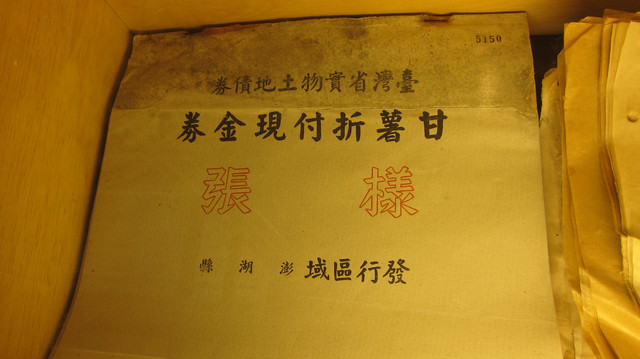 5150
臺灣省實物土地債券
甘薯折付現金券
樣張
發行區域澎湖縣